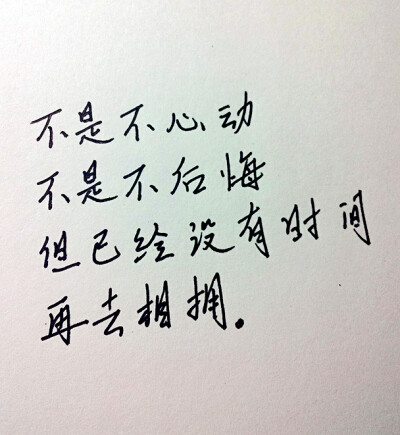 不是不心动
不是不后悔
但已经没有时间
再去相拥。